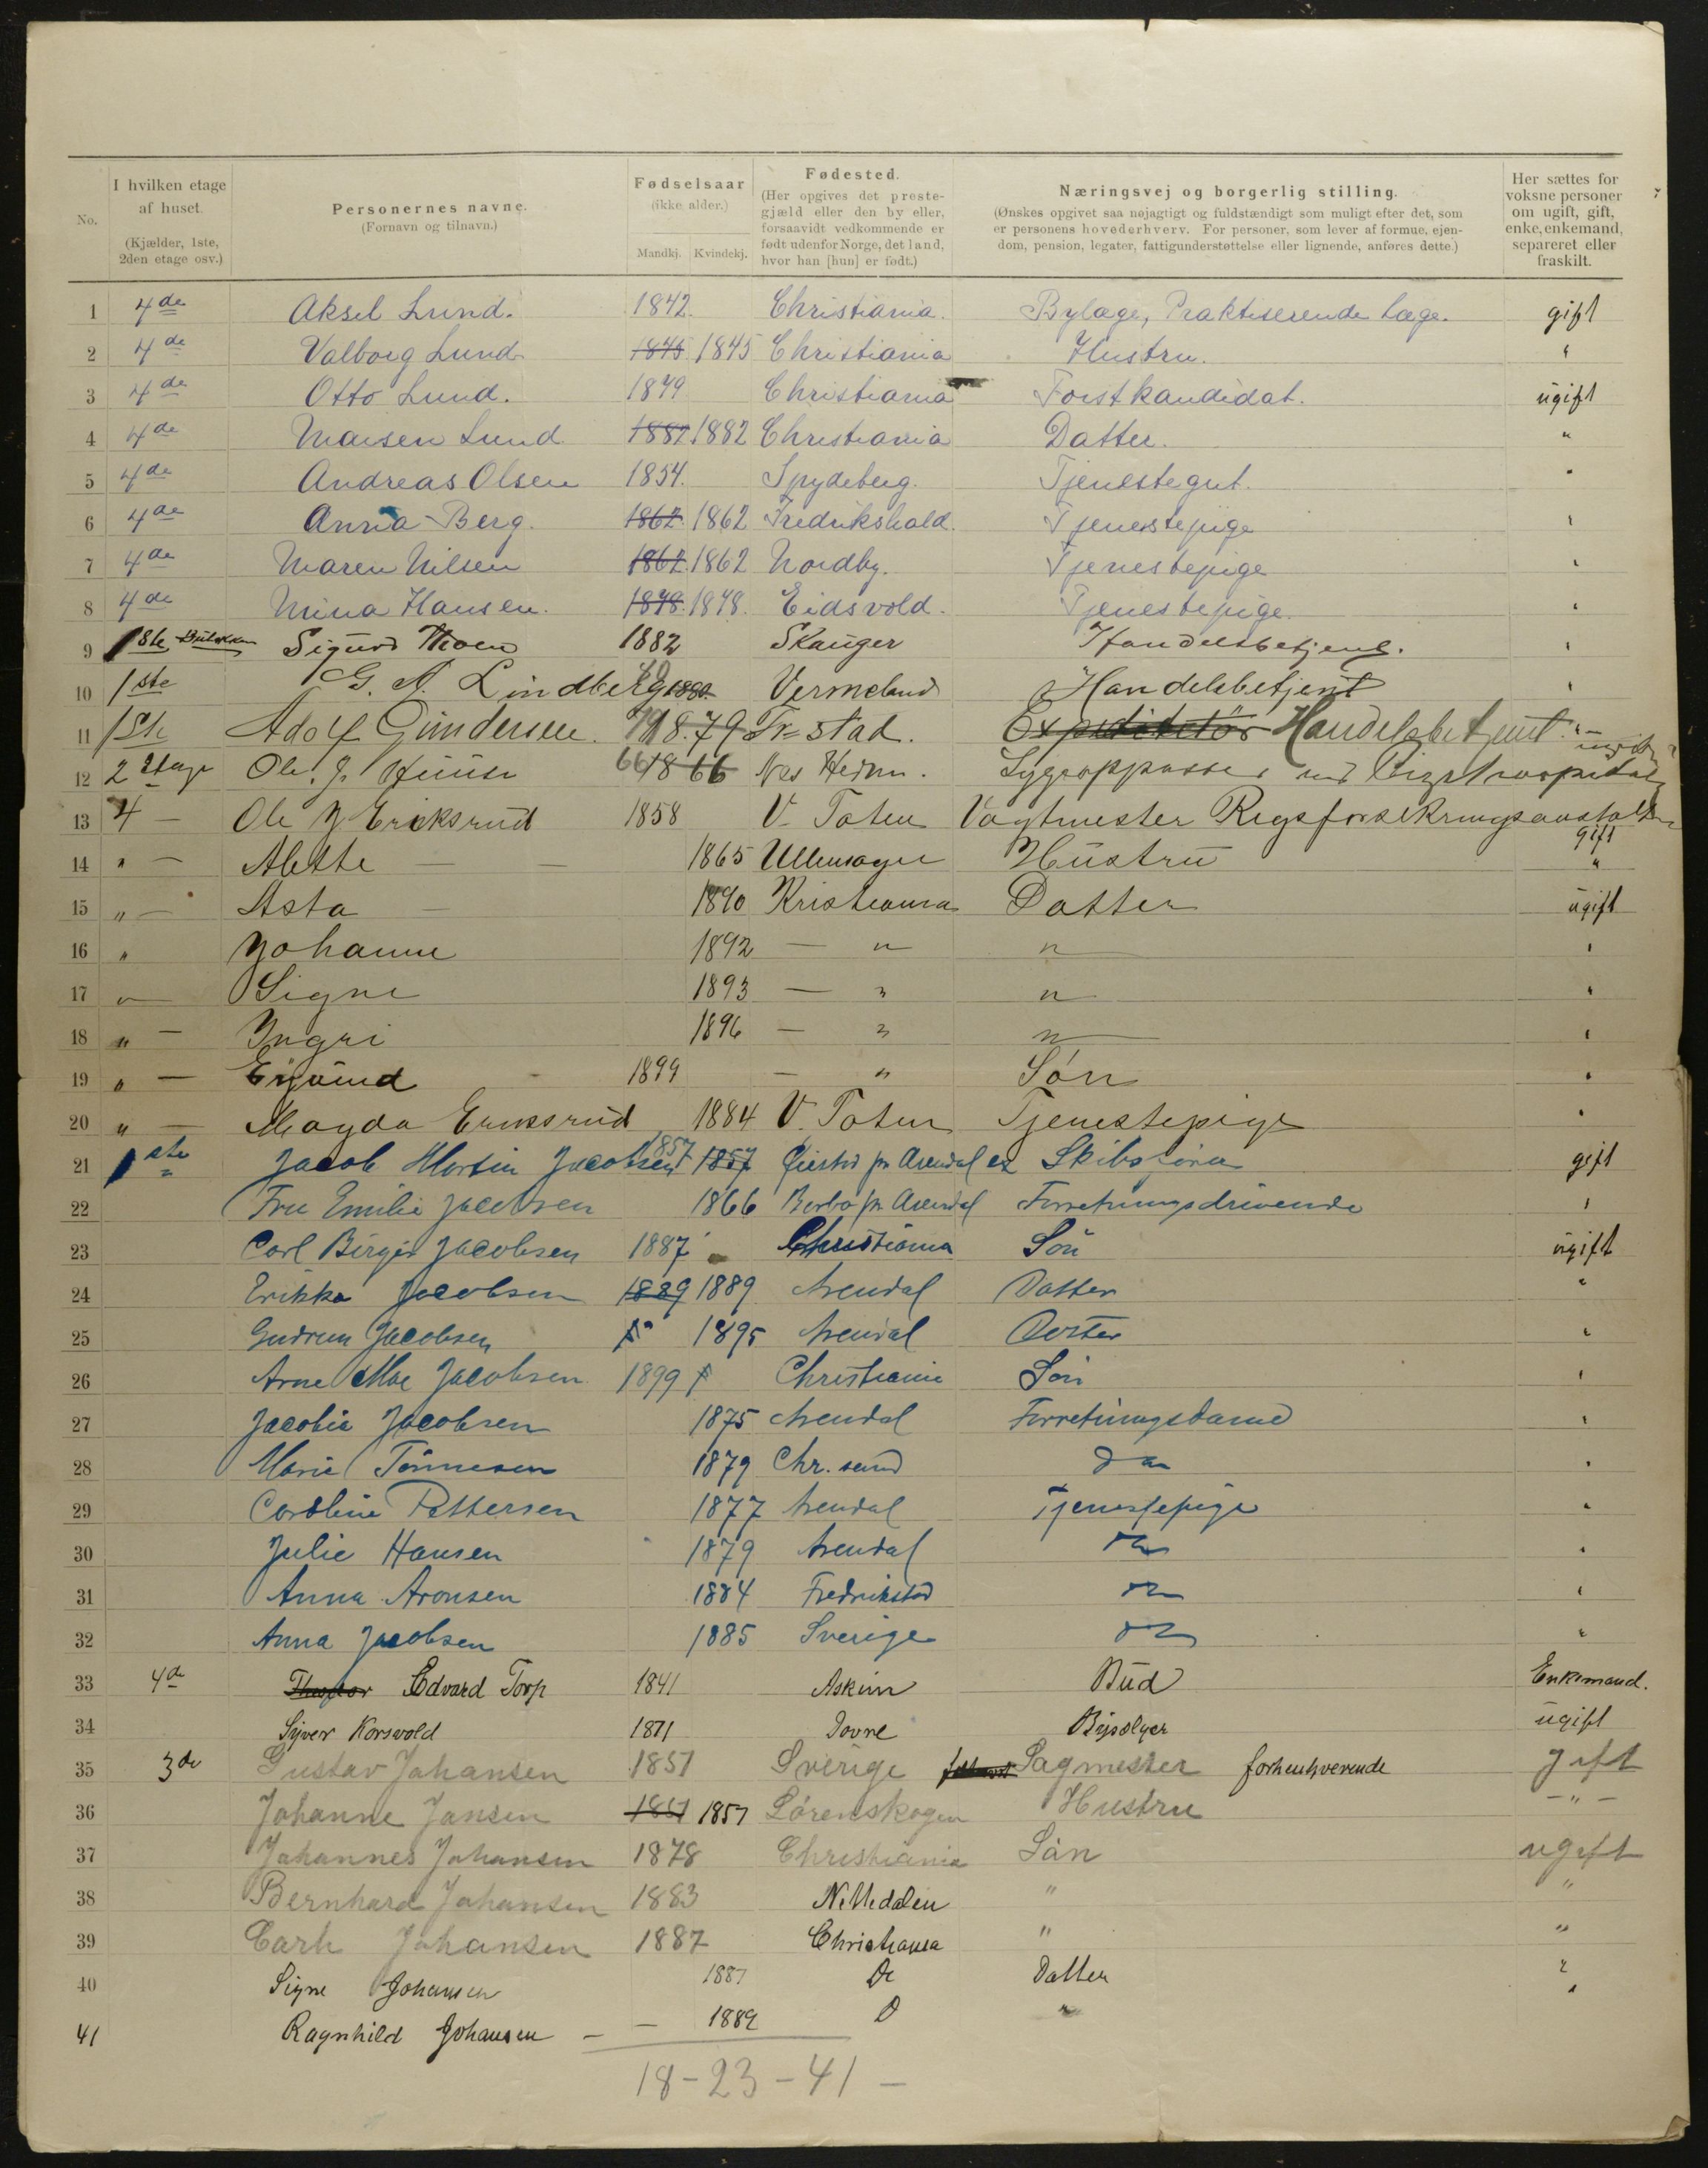 No.
I hvilken etage af huset.
(Kjælder, 1ste, 2den etage osv.)
Personernes navne.
(Fornavn og tilnavn.)
Fødselsaar
(ikke alder.)
Mandkj. Kvindekj.
Fødested.
(Her opgives det præste-
gjæld eller den by eller,
forsaavidt vedkommende er
født udenfor Norge, det land,
hvor han [hun] er født.)
Næringsvej og borgerlig stilling.
(Ønskes opgivet saa nøjagtigt og fuldstændigt som muligt efter det, som
er personens hovederhverv. For personer, som lever af formue, ejen-
dom, pension, legater, fattigunderstøttelse eller lignende, anføres dette.)
Her sættes for
voksne personer
om ugift, gift,
enke, enkemand,
separeret eller
fraskilt.
1 4de Aksel Lund. 1842. Christiania. Bylæge, Praktiserende læge. gift
2 4de Valborg Lund 1845 1845 Christiania Hustru. "
3 4de Otto Lund. 1879 Christiania Forstkandidat. ugift
4 4de Maisen Lund 1882 1882 Christiania Datter. "
5 4de Andreas Olsen 1854. Spydeberg. Tjenestegut. "
6 4de Anna Berg. 1862 1862 Fredrikshald. Tjenestepige "
7 4de Maren Nilsen 1862 1862 Nordby. Tjenestepige "
8 4de Mina Hansen. 1878. 1878. Eidsvold. Tjenestepige. "
9 1ste Sigurd Thoen 1882 Skauger Handelsbetjent. "
10 1ste G. A. Lindberg 80 1880 Vermeland Handelsbetjent "
11 1ste Adolf Gundersen. 79 18.79 Fr=stad. Expeditetör Handelsbetjent. "
12 2 Etage Ole. J. 66 1866 Nes Hedm. Sygeopasser ved Rigshospitalet ugift
13 4 — Ole J Eriksrud 1858 V. Toten Vagtmester Rigsforsikringsanstalten gift
14 " — Alette — — 1865 Ullensager Hustru "
15 " — Asta — 1890 Kristiania Datter ugift
16 " Johanne 1892 — " " "
17 " Signe 1893 — " " "
18 " — Yngri 1896 — " " "
19 " — 1899 — " Søn "
20 " — Magda Eriksrud 1884 V. Toten Tjenestepige "
21 1ste Jacob Martin Jacobsen 1857 1857 Øiestad pr Arendal ex Skibsfører gift
22 Fru Emilie Jacobsen 1866 pr Arendal Forretningsdrivende "
23 Carl Birger Jacobsen 1887 Christiania Sön ugift
24 Erikka Jacobsen 1889 1889 Arendal Datter "
25 Gudrun Jacobsen 1895 Arendal Datter "
26 Arne Moe Jacobsen 1899 Christiania Sön "
27 Jacobie Jacobsen 1875 Arendal Forretningsdame "
28 Marie Tönnesen 1879 Chr. sand do "
29 Caroline Pettersen 1877 Arendal Tjenestepige "
30 Julie Hansen 1879 Arendal do "
31 Anna Aronsen 1884 Fredrikstad do "
32 Anna Jacobsen 1885 Sverige do "
33 4de Theodor Edvard Torp 1841 Askim Bud Enkemand.
34 Syver Korsvold 1871 Dovre ugift
35 3de Gustav Johansen 1851 Sverige Sagmester forhenhverende gift
36 Johanne Jansen 1857 Lørenskogen Hustru — " —
37 Johannes Johansen 1878 Christiania Sön ugift
38 Bernhard Johansen 1883 Nittedalen " "
39 Carl Johansen 1887 Christiania " "
40 Signe Johansen 1887 Do Datter "
41 Ragnhild Johansen — — 1889 D " "
18 – 23 – 41 –